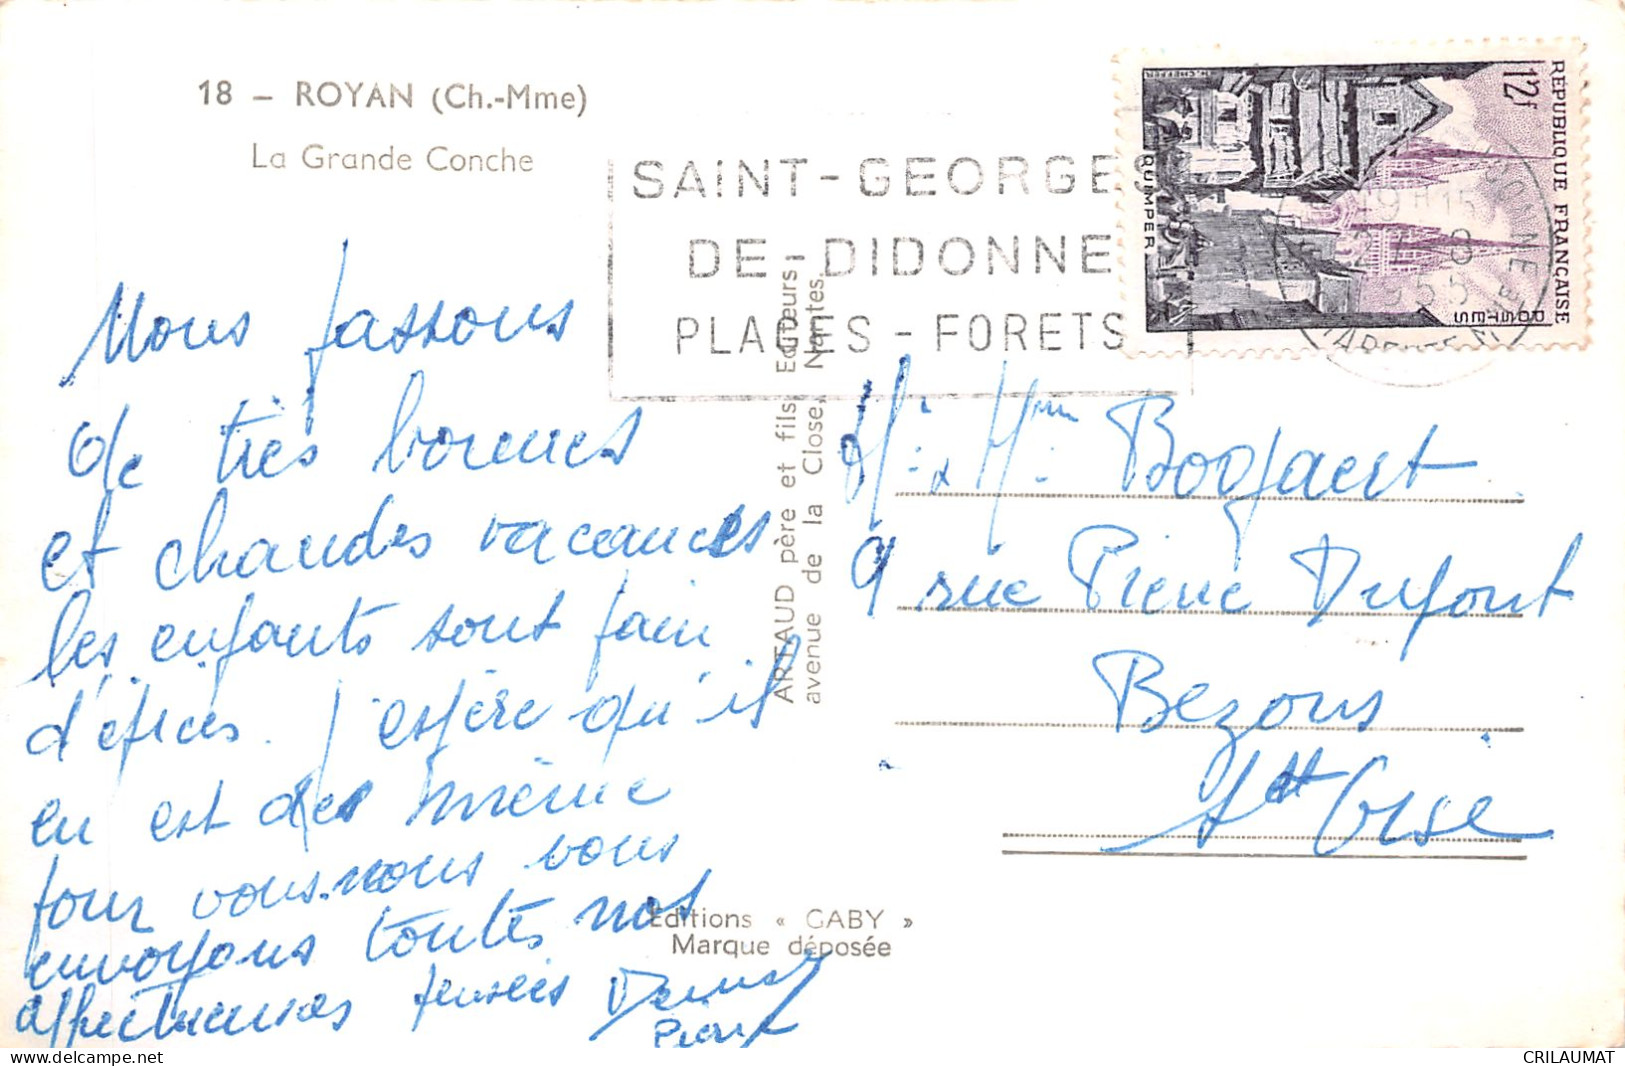 18 – ROYAN (Ch.-Mme)
La Grande Conche
SAINT-GEORGES
DE-DIDONNE
PLAGES-FORETS
RÉPUBLIQUE FRANÇAISE
12f
POSTES
QUIMPER
19H15
1955
Nous passons
de très bonnes
et chaudes vacances
les enfants sont pain
d'épices. J'espère qu'il
en est de même
pour vous. nous vous
envoyons toutes nos
affectueuses pensées
Pierre
ARTAUD père et fils Editeurs
avenue de la Close, Nantes
Editions « GABY »
Marque déposée
Mr. & Mme Boogaert
9 rue Pierre Dufour
Bezons
S. et Oise
delcampe.net
CRILAUMAT